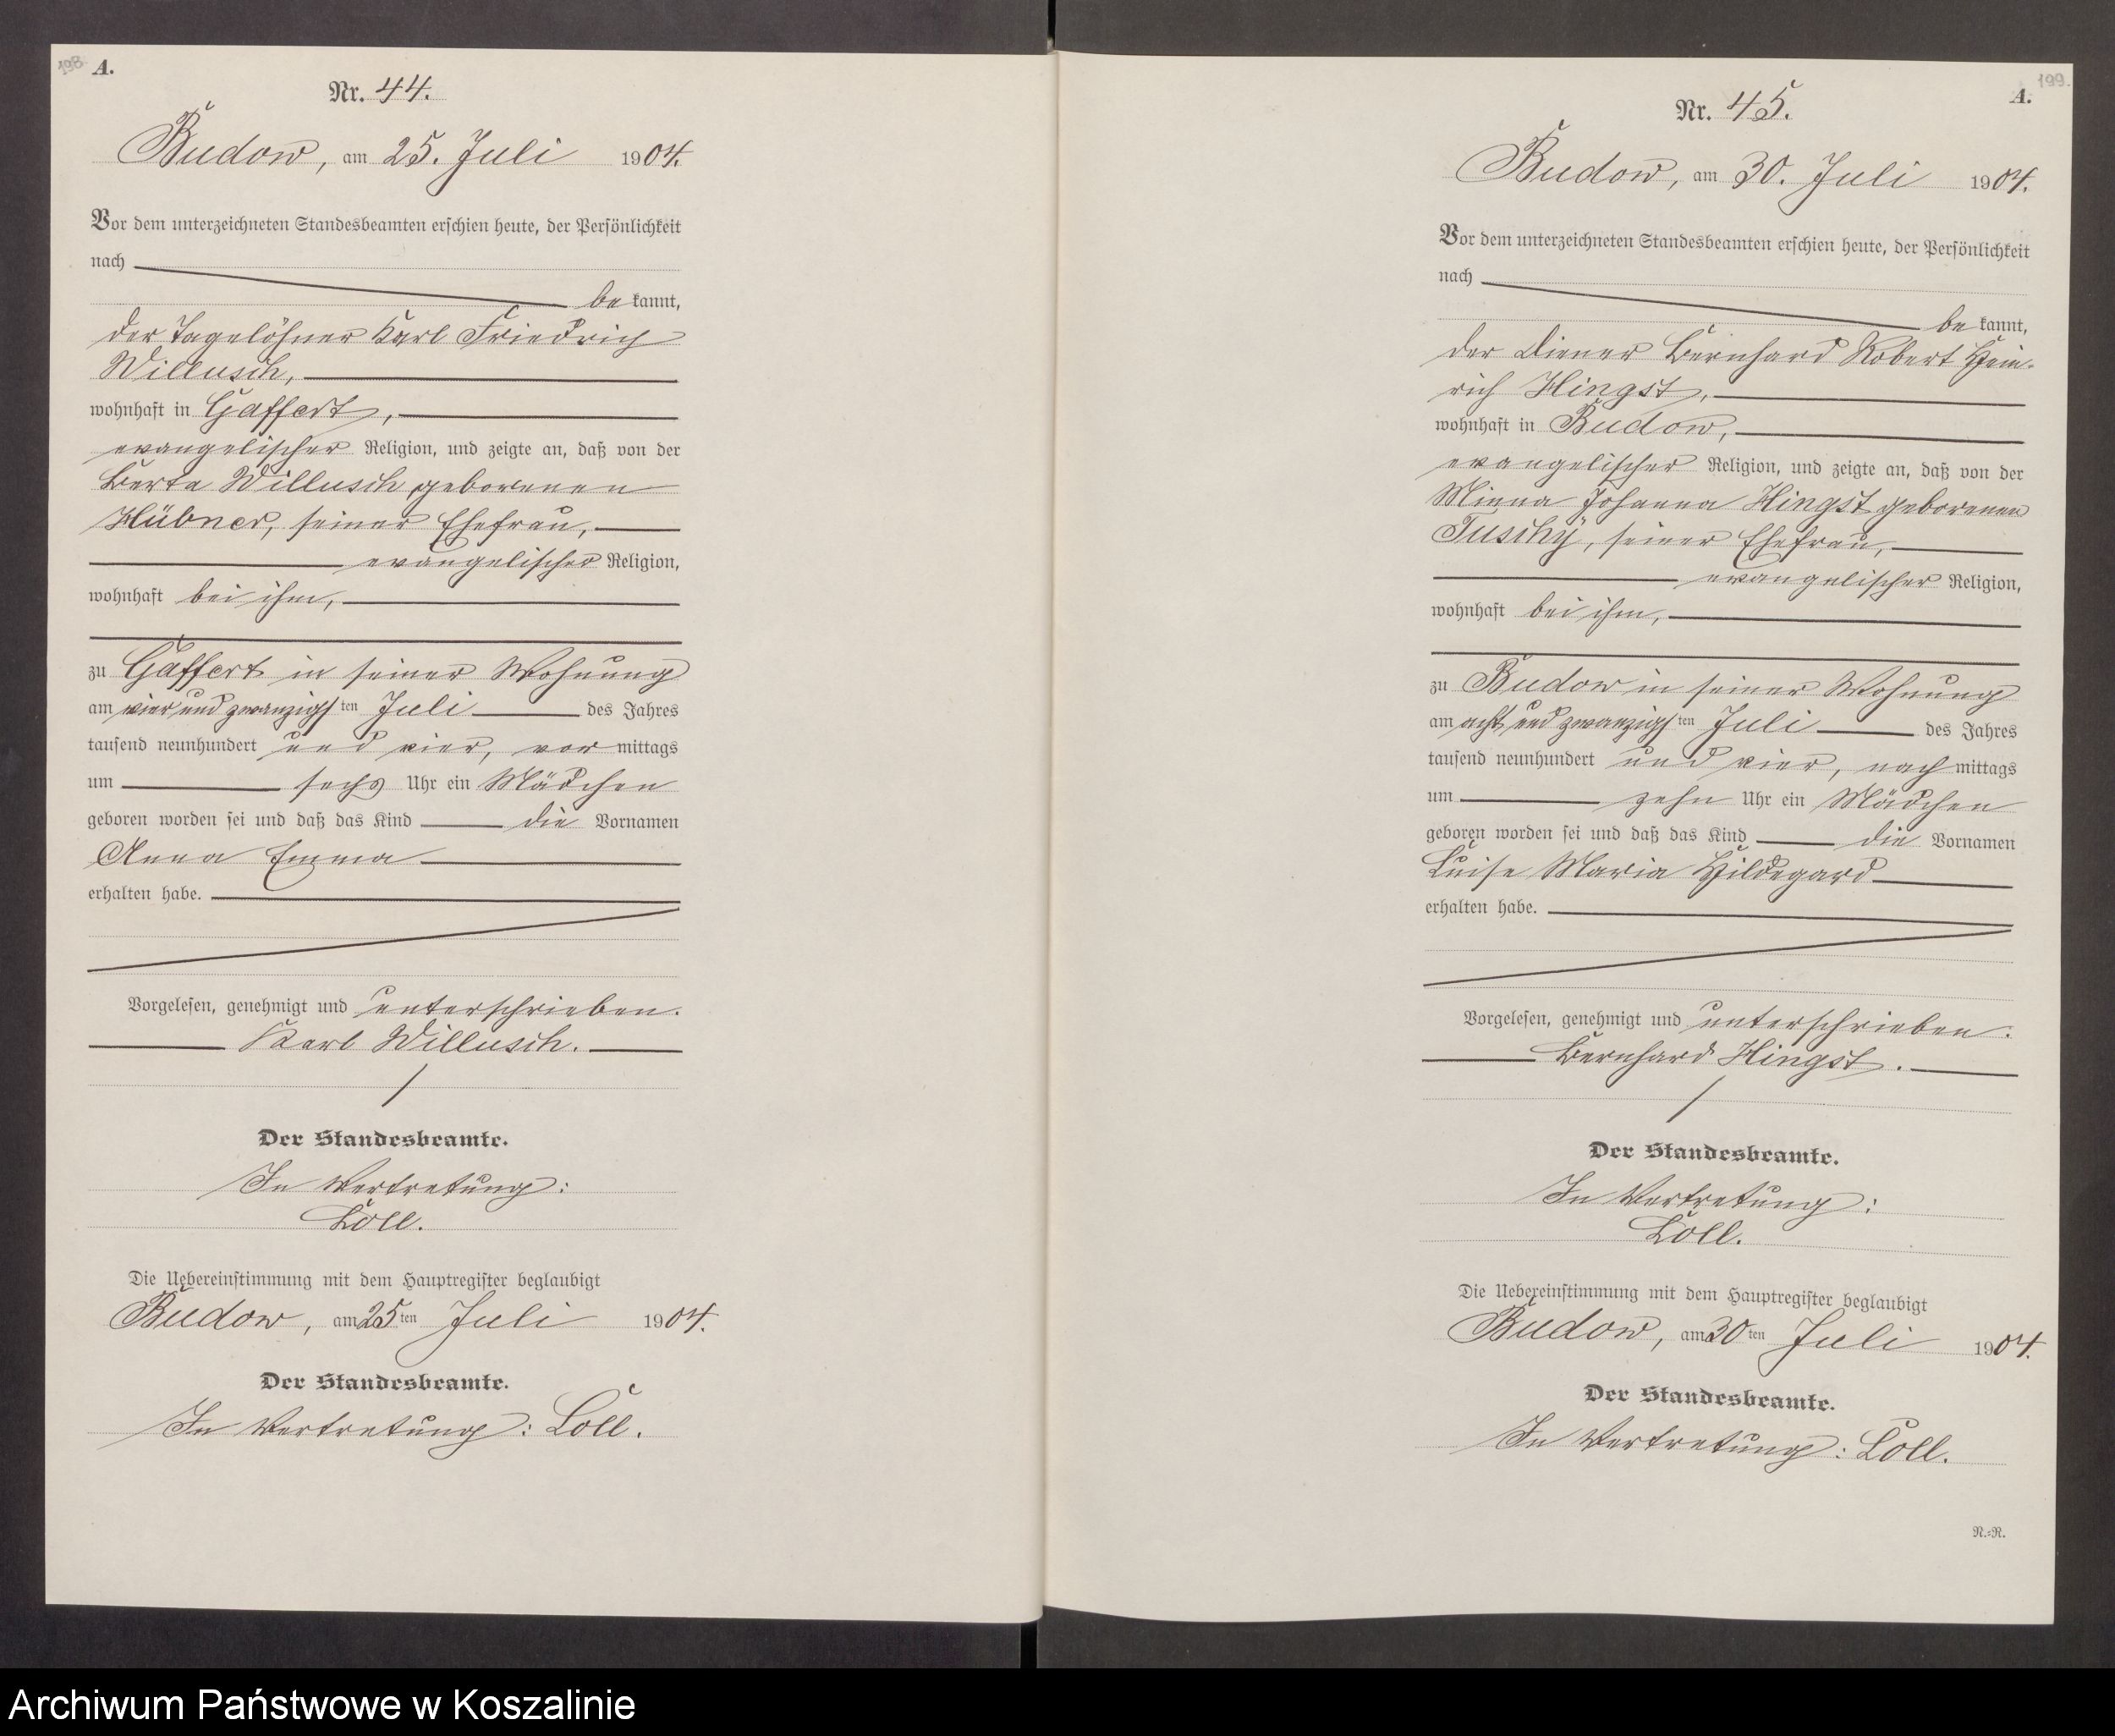 198.
A.
Nr. 44.
Budow, am 25. Juli 1904.
Vor dem unterzeichneten Standesbeamten erschien heute, der Persönlichkeit
nach
be kannt,
der Tagelöhner Karl Friedrich
Willusch,
wohnhaft in Gaffert,
evangelischer Religion, und zeigte an, daß von der
Berta Willusch geborenen
Hübner, seiner Ehefrau,
evangelischer Religion,
wohnhaft bei ihm,
zu Gaffert in seiner Wohnung
am vier und zwanzigsten Juli des Jahres
tausend neunhundert und vier, vor mittags
um sechs Uhr ein Mädchen
geboren worden sei und daß das Kind die Vornamen
Anna Emma
erhalten habe.
Vorgelesen, genehmigt und unterschrieben.
Karl Willusch.
Der Standesbeamte.
In Vertretung:
Loll.
Die Uebereinstimmung mit dem Hauptregister beglaubigt
Budow, am 25ten Juli 1904.
Der Standesbeamte.
In Vertretung: Loll.
199.
A.
Nr. 45.
Budow, am 30. Juli 1904.
Vor dem unterzeichneten Standesbeamten erschien heute, der Persönlichkeit
nach
be kannt,
der Diener Bernhard Robert Hein-
rich Hingst,
wohnhaft in Budow,
evangelischer Religion, und zeigte an, daß von der
Minna Johanna Hingst geborenen
Tuschy, seiner Ehefrau,
evangelischer Religion,
wohnhaft bei ihm,
zu Budow in seiner Wohnung
am acht und zwanzigsten Juli des Jahres
tausend neunhundert und vier, nach mittags
um zehn Uhr ein Mädchen
geboren worden sei und daß das Kind die Vornamen
Luise Maria Hildegard
erhalten habe.
Vorgelesen, genehmigt und unterschrieben.
Bernhard Hingst.
Der Standesbeamte.
In Vertretung:
Loll.
Die Uebereinstimmung mit dem Hauptregister beglaubigt
Budow, am 30ten Juli 1904.
Der Standesbeamte.
In Vertretung: Loll.
N.=R.
Archiwum Państwowe w Koszalinie